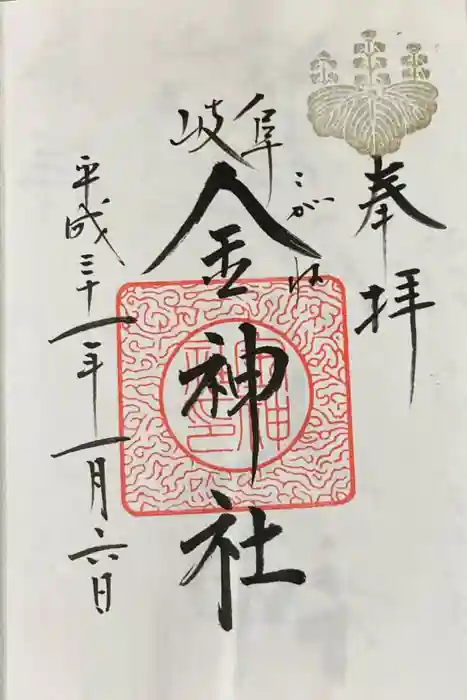 奉拝
岐阜
金神社
こがね
平成三十一年一月六日